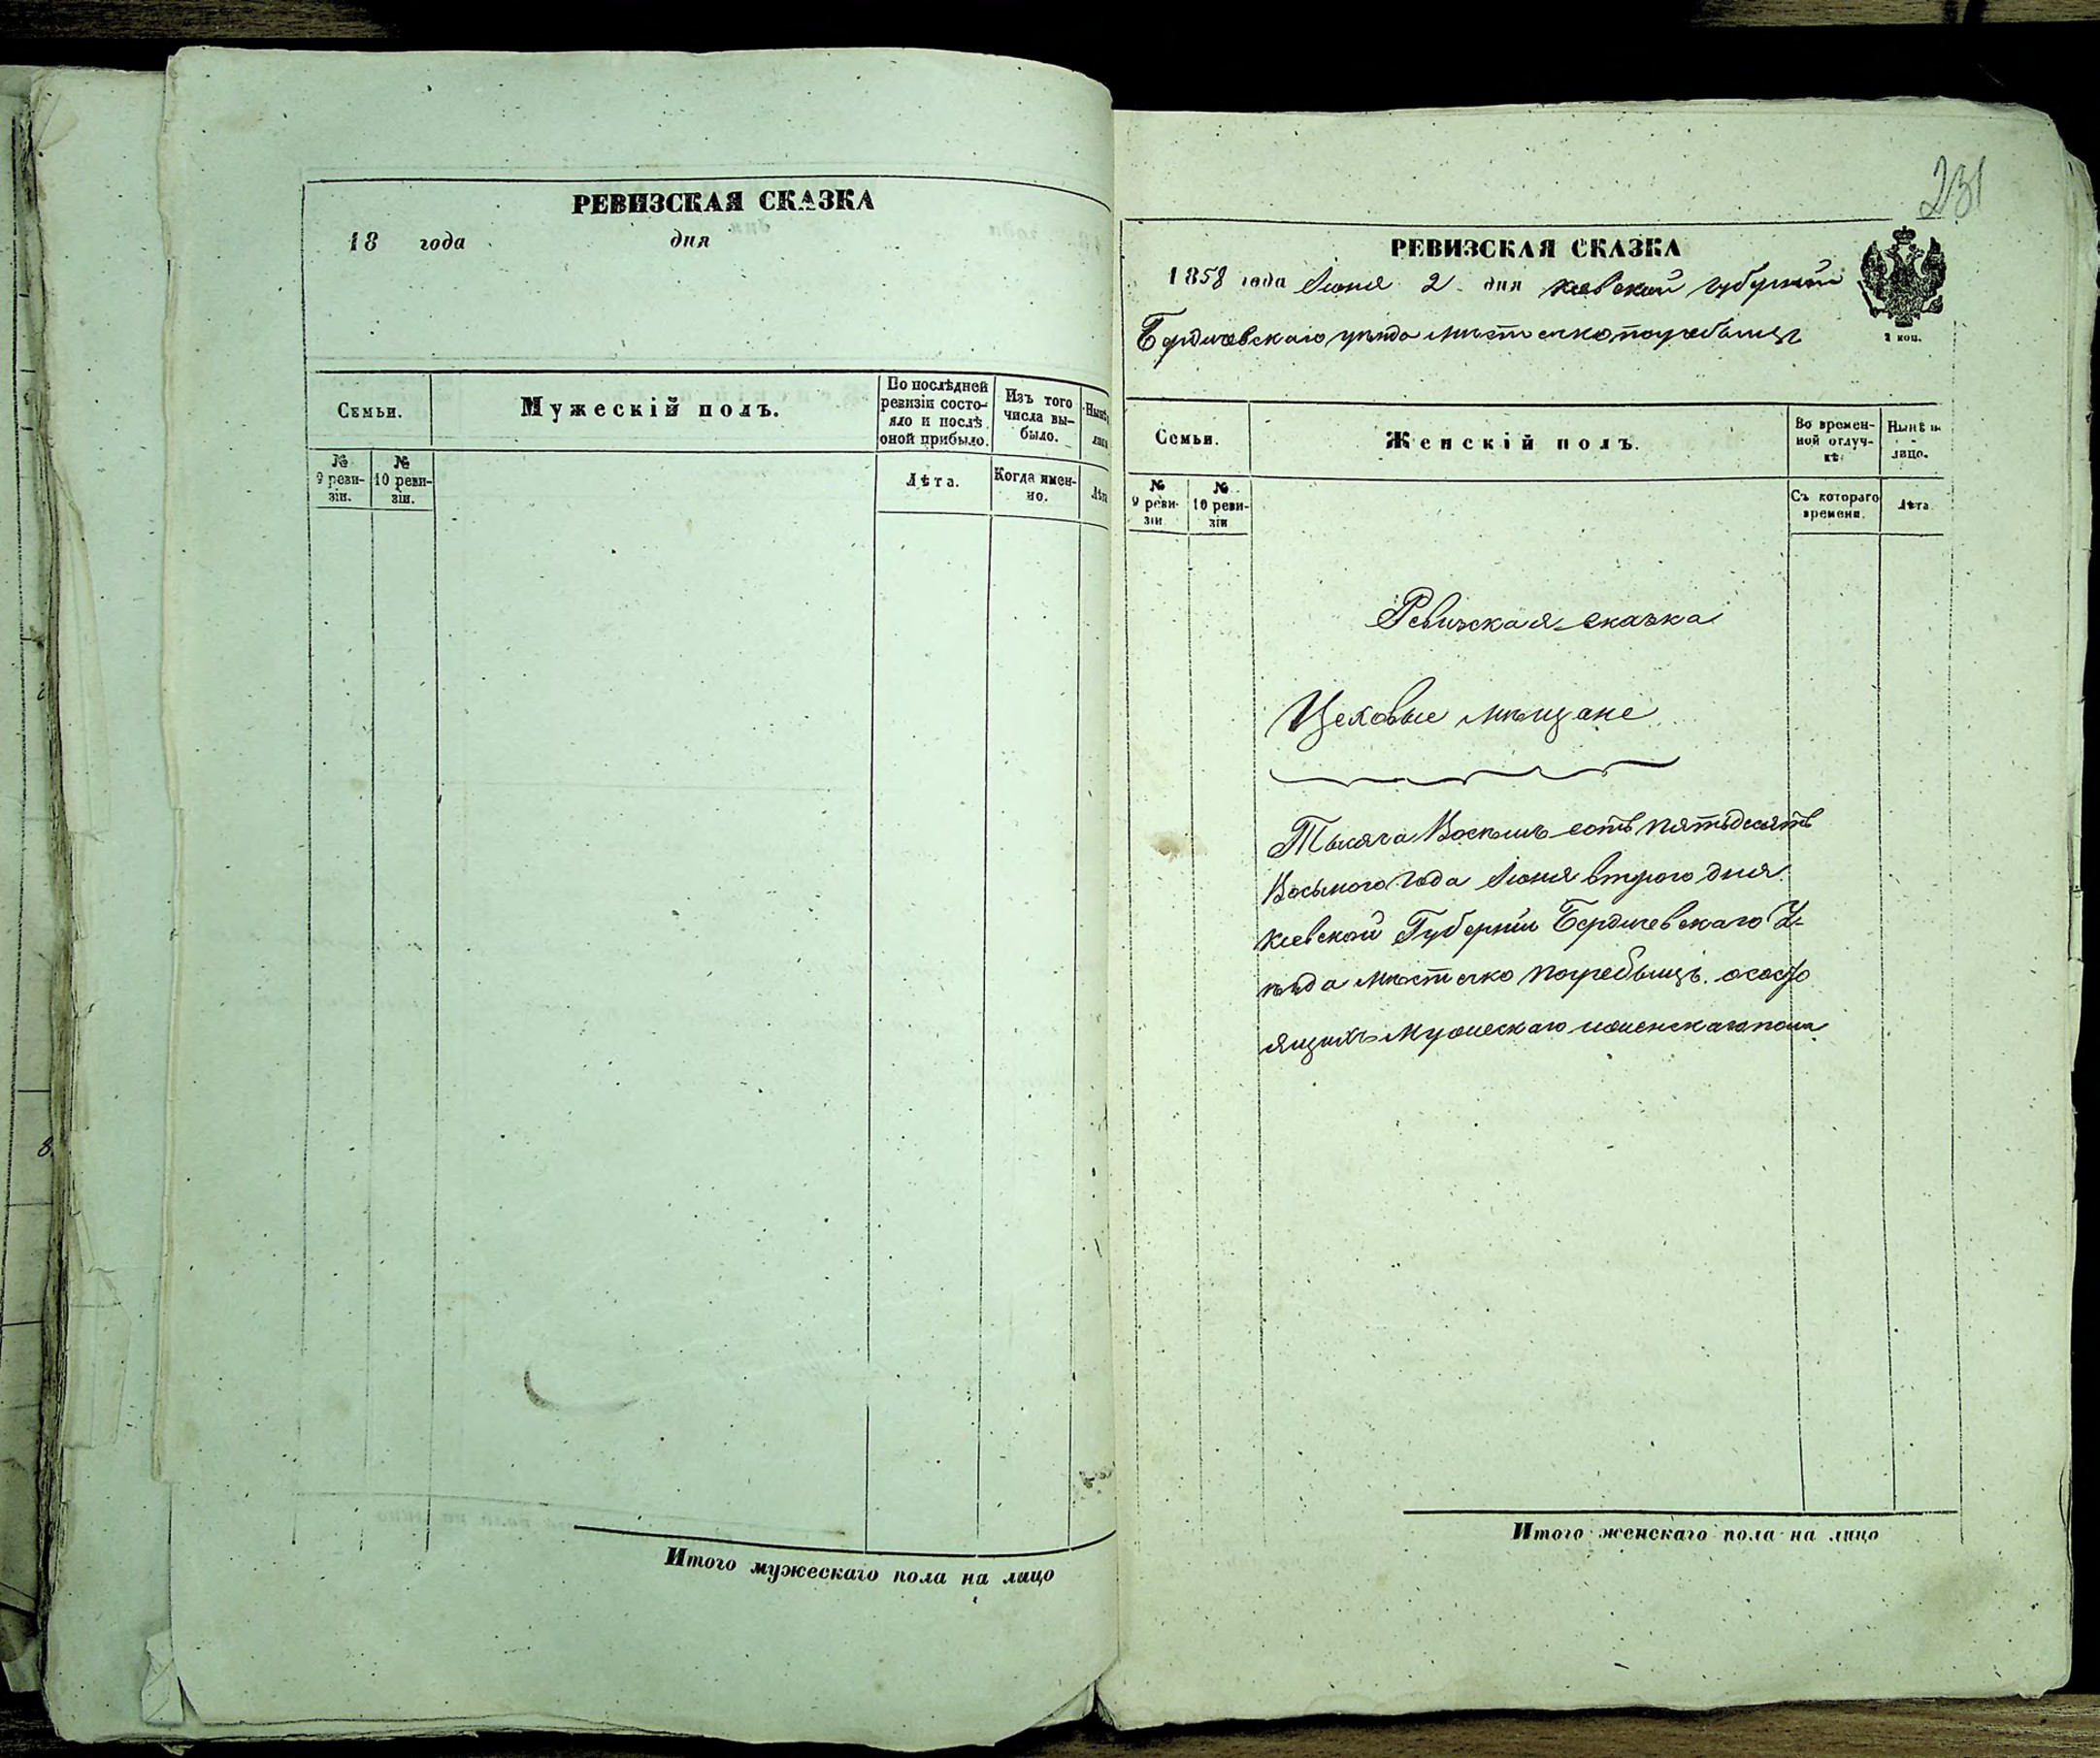 РЕВИЗСКАЯ СКАЗКА
18 года дня
Семьи.
Мужескій полъ.
По послѣдней ревизіи состо-
яло и послѣ
оной прибыло.
Изъ того
числа вы-
было.
№
9 реви-
зіи.
№
10 реви-
зіи.
Лѣта.
Когда имен-
но.
Итого мужескаго пола на лицо
231
РЕВИЗСКАЯ СКАЗКА
1858 года Іюня 2 дня Киевской губерніи
Бердичевскаго уѣзда мѣстечко погребыщъ
Семьи.
Женскій полъ.
Во времен-
ной отлуч-
кѣ
Нынѣ н-
лицо.
№
9 реви-
зіи
№
10 реви-
зіи
Съ котораго
времени.
Лѣта.
Ревизская сказка
Цеховые мѣщане
Тысяча Восемь сотъ пятьдесятъ
Восьмого года Іюня второго дня
Киевской Губерніи Бердичевскаго У-
ѣзда мѣстечко погребыщъ. о состо
ящихъ Мужескаго и женскаго пола
Итого женскаго пола на лицо